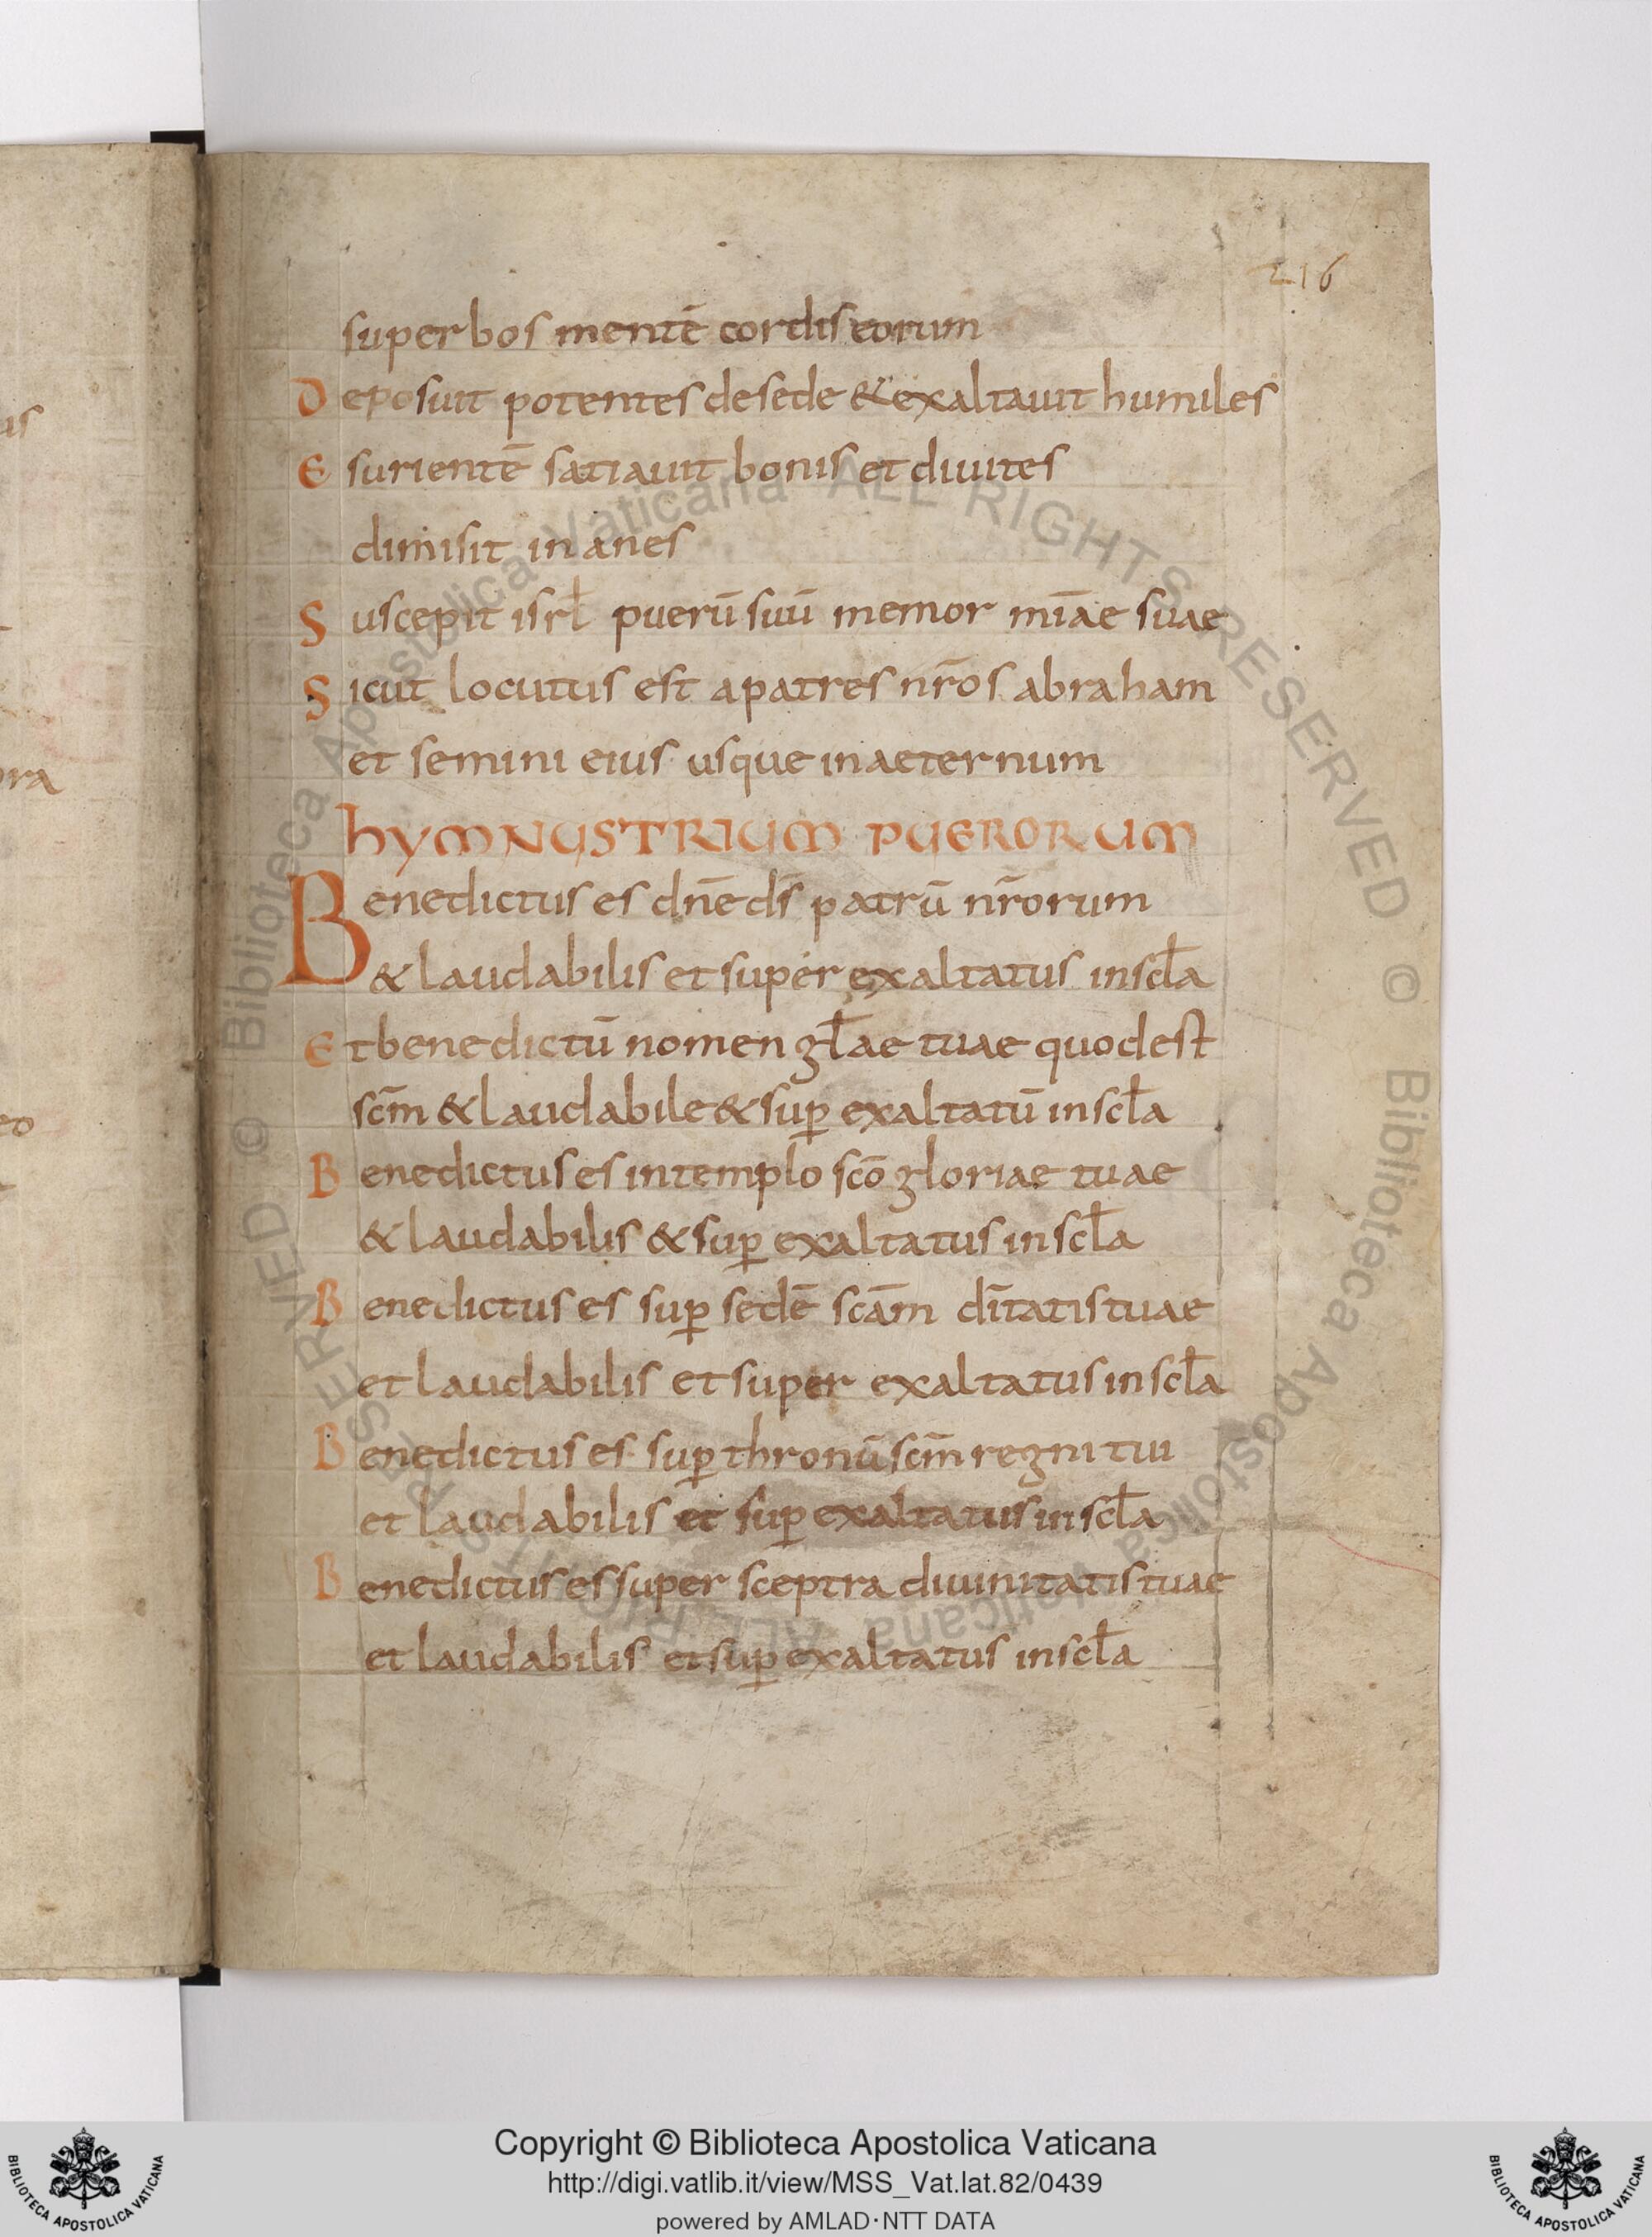 216
superbos mentē cordis eorum
Deposuit potentes de sede & exaltauit humiles
Esurientē satiauit bonis et diuites
dimisit inanes
Suscepit isrł puerū suū memor mīae suae
Sicut locutus est apatres nr̄os abraham
et semini eius usque in aeternum
hymnus trium puerorum
Benedictus es dn̄e ds̄ patrū nr̄orum
& laudabilis et super exaltatus in scła
Et benedictū nomen głae tuae quod est
scm̄ & laudabile & sup̱ exaltatū in scła
Benedictus es in templo scō gloriae tuae
& laudabilis & sup̱ exaltatus in scła
Benedictus es sup̱ sedē scām dītatis tuae
et laudabilis et super exaltatus in scła
Benedictus es sup̱ thronū scm̄ regni tui
et laudabilis et sup̱ exaltatus in scła
Benedictus es super sceptra diuinitatis tuae
et laudabilis et sup̱ exaltatus in scła
us
ora
eo
© Biblioteca Apostolica Vaticana ALL RIGHTS RESERVED © Biblioteca Apostolica Vaticana ALL RIGHTS RESERVED
Copyright © Biblioteca Apostolica Vaticana
http://digi.vatlib.it/view/MSS_Vat.lat.82/0439
powered by AMLAD·NTT DATA
BIBLIOTECA APOSTOLICA VATICANA
BIBLIOTECA APOSTOLICA VATICANA